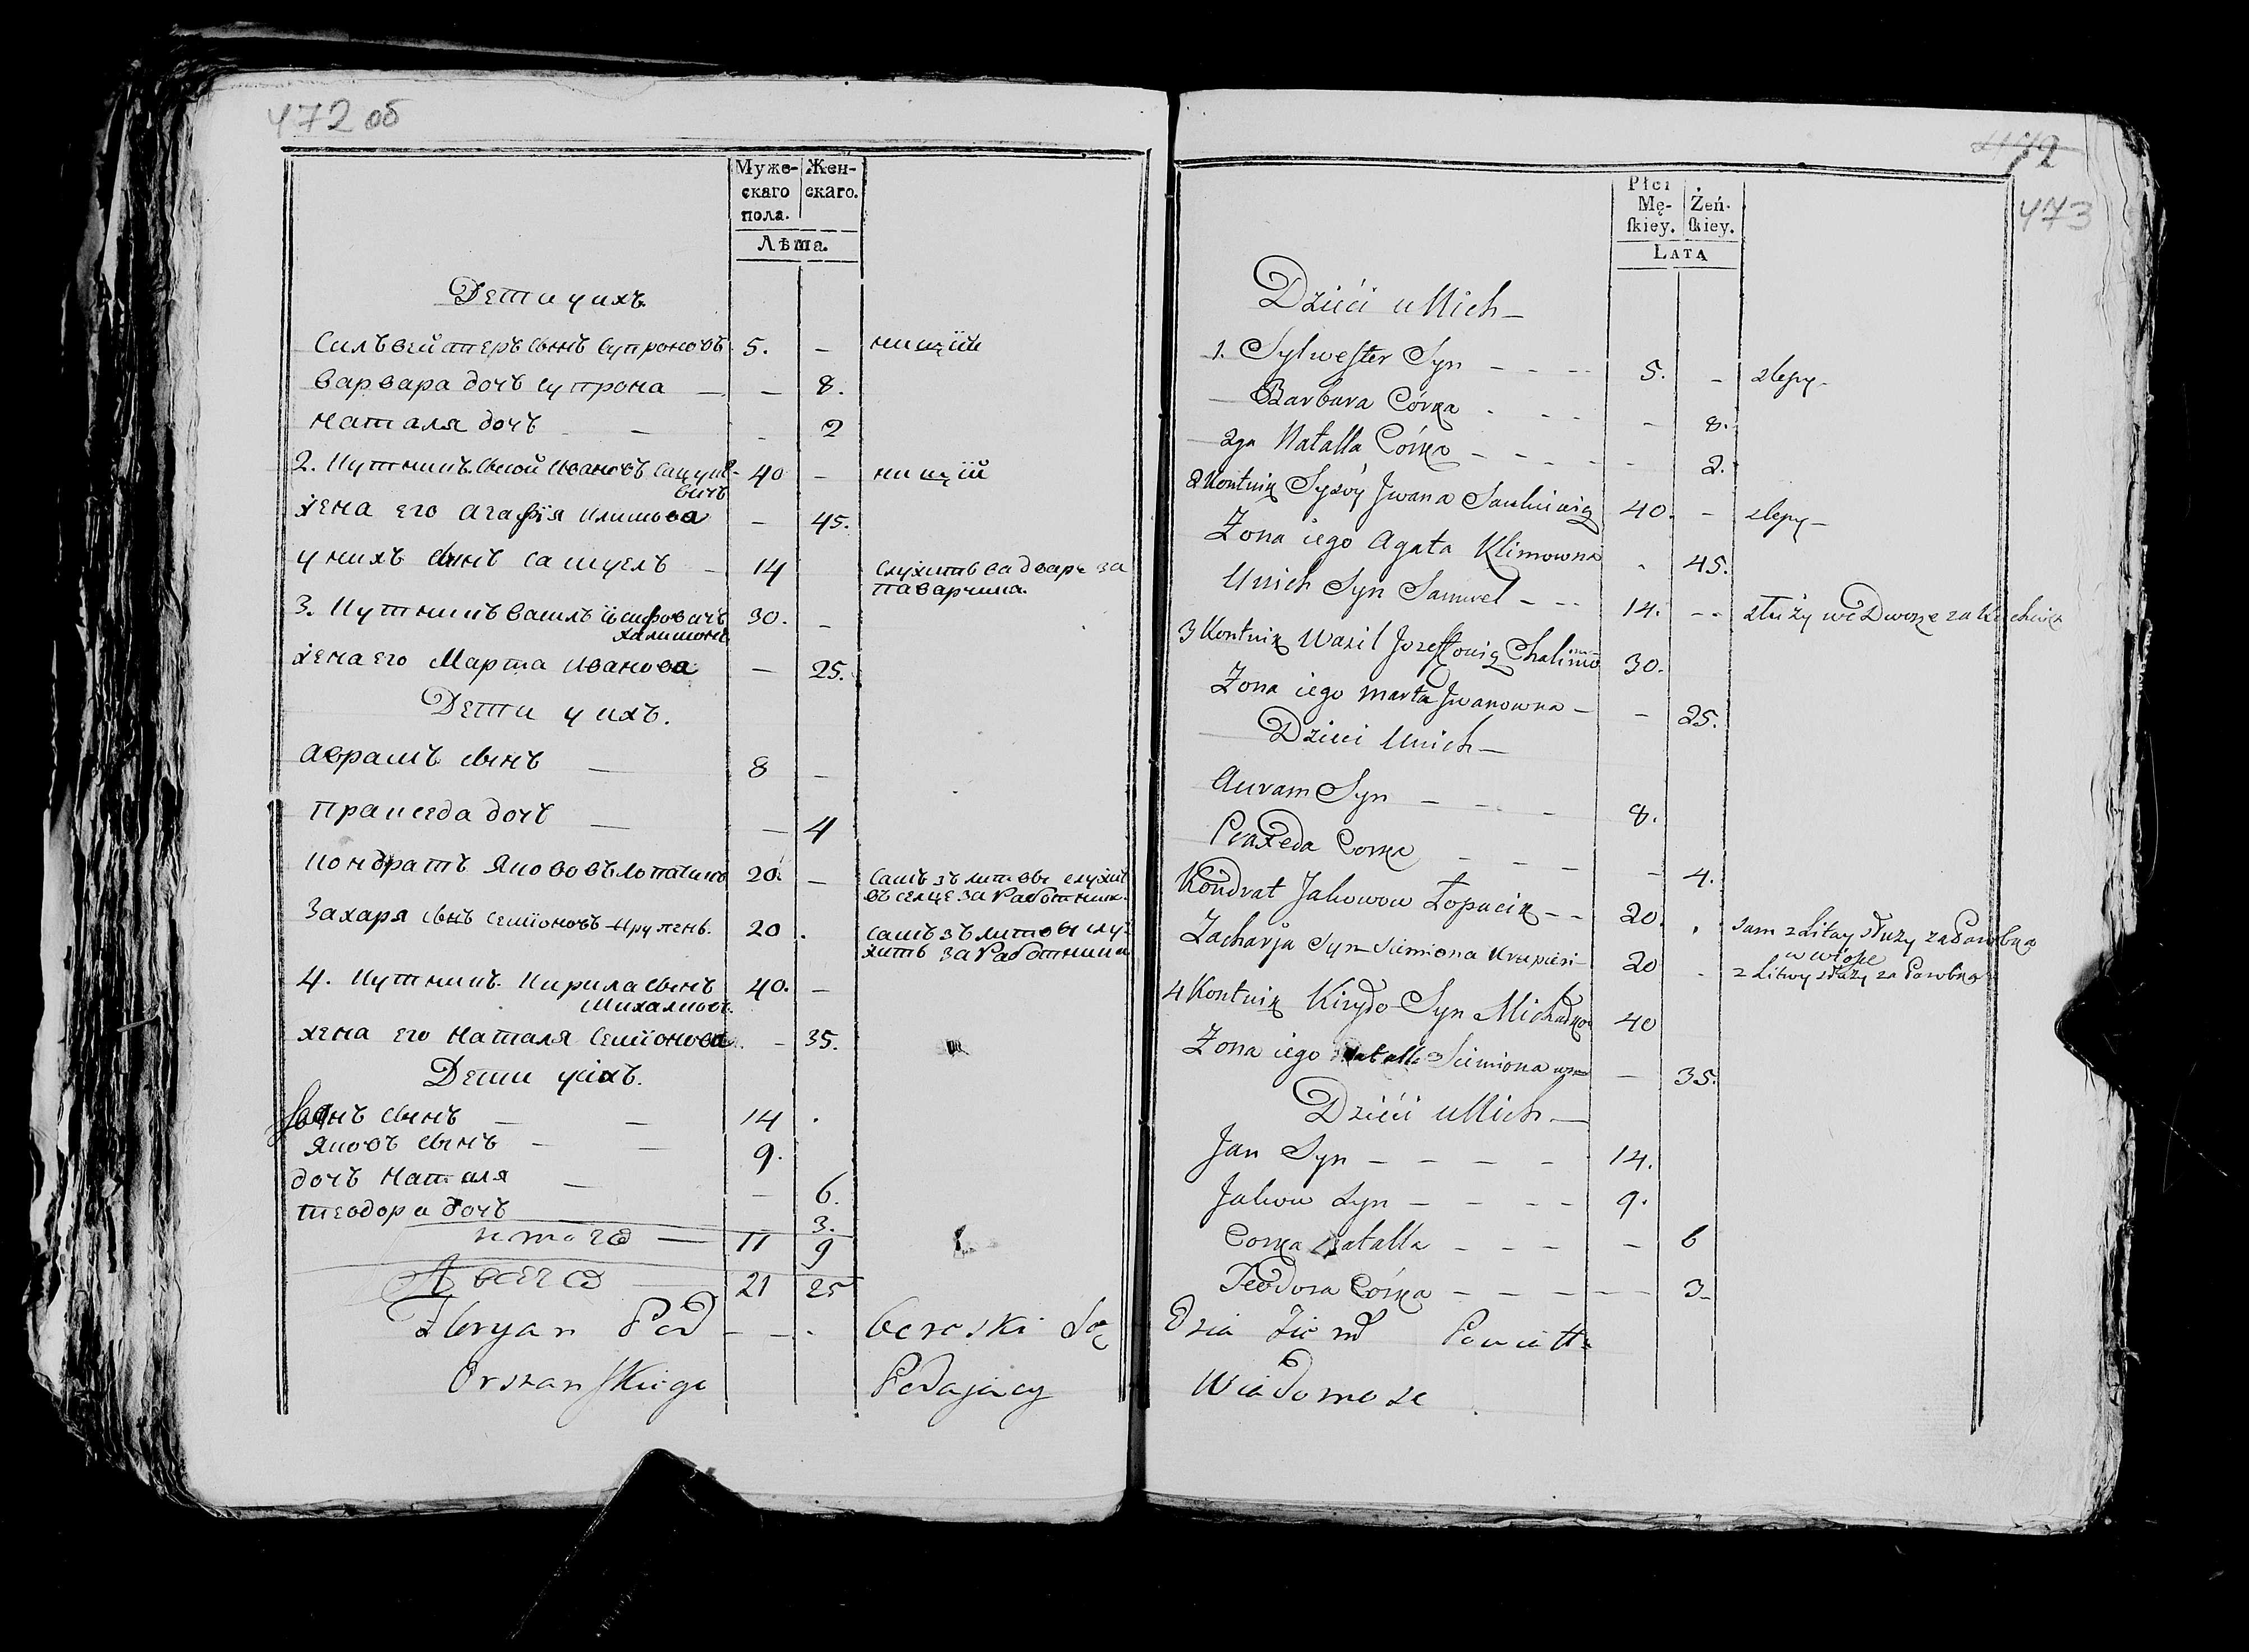 472 об
Муже-
скаго
пола.
Жен-
скаго.
Лѣта.
Дети у ихъ.
Силъвейстеръ сынъ Супроновъ 5. – нищїи
варвара дочъ супрона – – 8.
наталя дочъ – – 2
2. Кутникъ. Сысой Ивановъ 40 – нищїй
жена его агафїя климова – 45.
у нихъ сынъ самуелъ – 14 служитъ ва дваре за
паварчика.
3. Кутникъ василъ їосифовичъ 30. –
халимонъ
жена его Марта иванова – 25.
Дети у ихъ.
авраамъ сынъ – 8 –
пракседа дочъ – – 4
кондратъ яковъвъ лопатъ 20. – самъ зъ литвы служитъ
въ селце за работника.
Захаря сынъ семїоновъ крупенъ. 20 . самъ зъ литвы слу-
житъ за работника
4. Кутникъ. Кирила сынъ 40. –
Михалковъ.
жена его наталя семїонова – 35.
Дети у ихъ.
сынъ – – 14 .
яковъ сынъ – – 9.
дочъ наталя – – 6.
теодора дочъ 3.
итого – 11 9
А всего – 21 25
72
473
Płci
Mę-
ſkiey.
Żeń-
ſkiey.
LATA
Dzieći u Nich –
1. Sylwester Syn – – – – 5. – slepy –
Barbara Córka – – – – 8.
2ga Natalla Córka – – – – 2.
2 Kontnik Sysoy Jwana 40. – slepy –
Żona iego Agata Klimowna – 45.
U nich Syn Samuel – – – 14. – – służy we Dworze za
3 Kontnik Wasil Jozefowicz Chalimo 30.
Żona iego marta Jwanowna – – 25.
Dzieci U nich –
Auram Syn – – – – 8.
Praxeda Corka – – – – 4.
Kondrat Jakowow Łopacik – – 20. . sam z Litwy służy za Parobka
w
Zacharja Syn Simiona Krupień – 20 . z Litwy służy za Parobka
4 Kontnik Kiryło Syn Michałkow 40
Żona iego Natalla Simionawna – 35.
Dzieći u Nich –
Jan Syn – – – – 14.
Jakow Syn – – – – 9.
Corka Natalla – – – – 6
Teodora Córka – – – – – – 3 –
Floryan Sę dzia Powiattu
Orszanſkiego Podający Wiadomosc